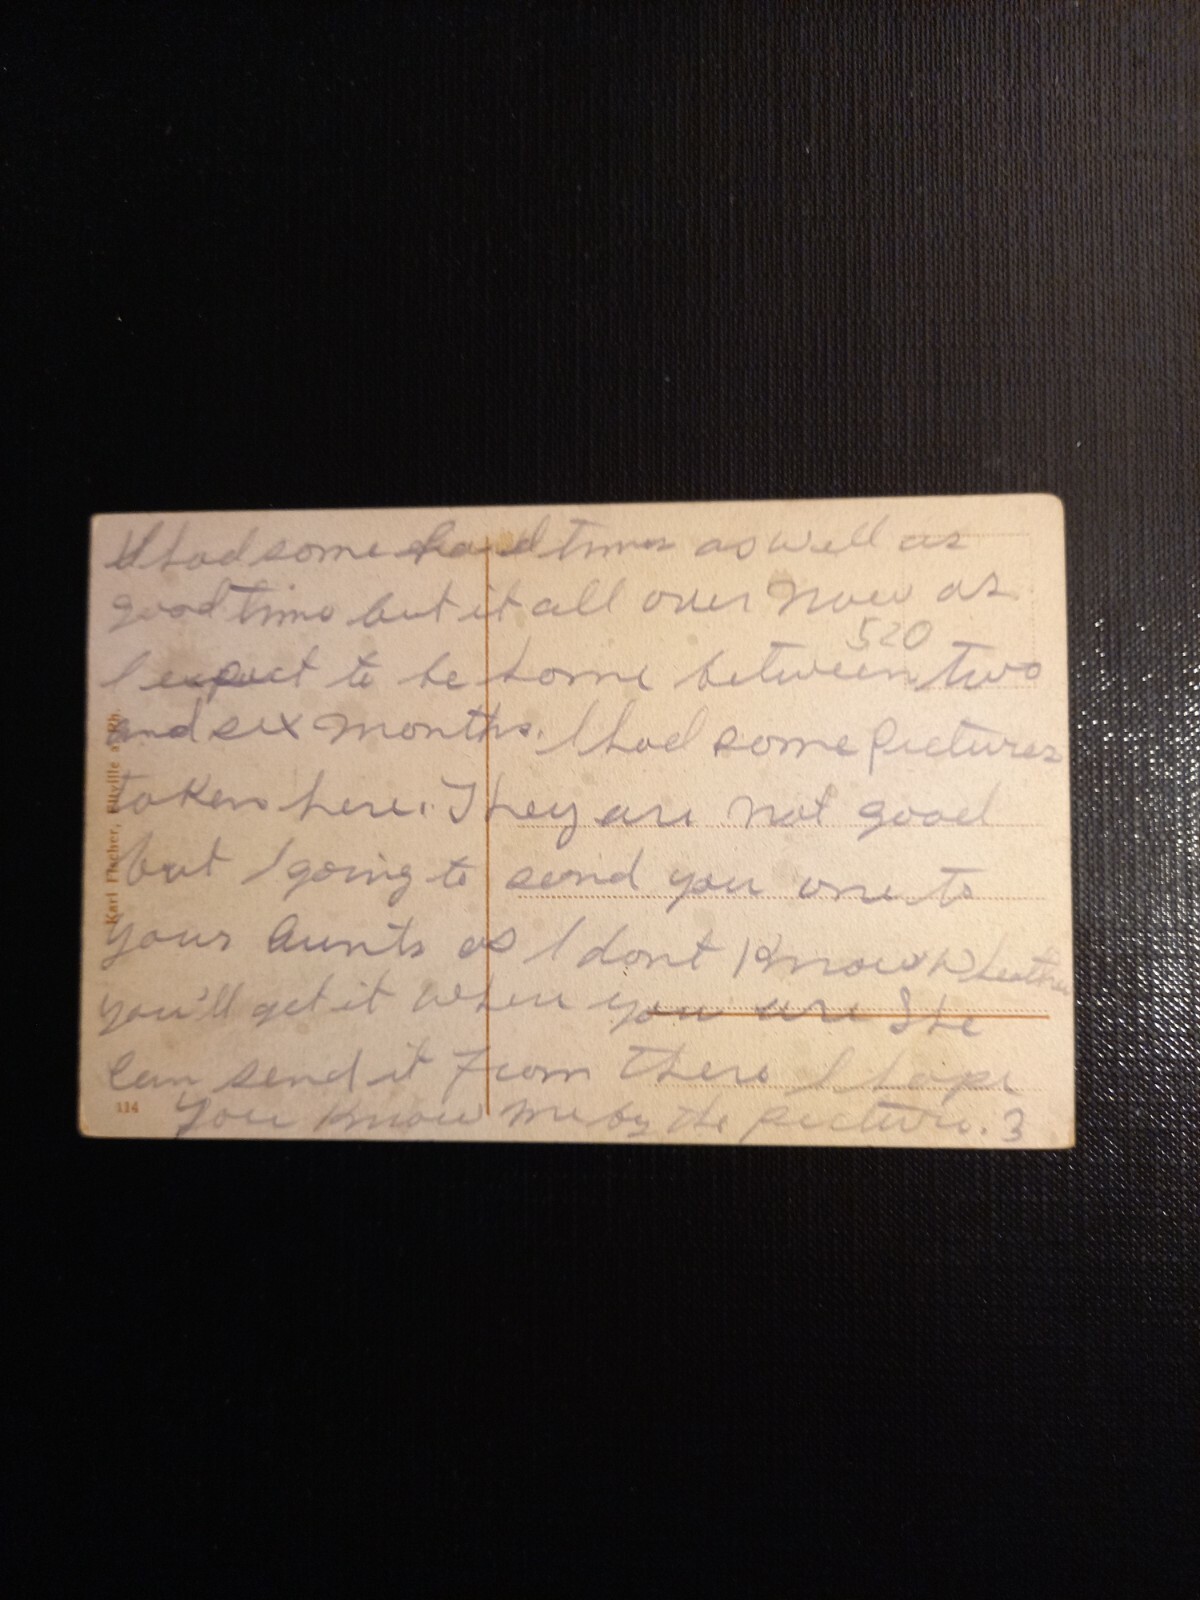 I had some hard times as well as
good time but it all over now as
520
I expect to be home between two
and six months. I had some pictures
taken here. They are not good
but I going to send you one to
your aunts as I dont know wheather
you'll get it when you are She
can send it from there I hope
you know me by the picture. 3
Karl Fischer, Eltville a. Rh.
114